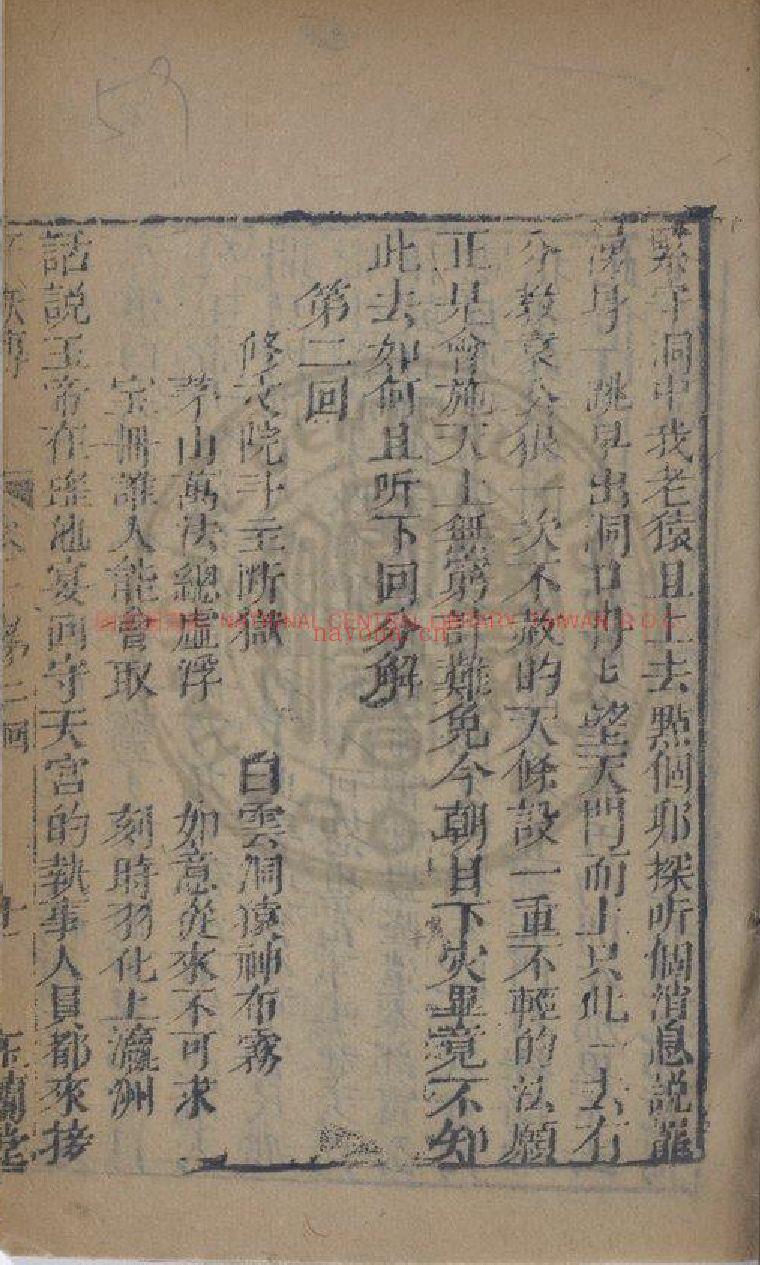 緊守洞中我老猿且上去點個卯探听個消息説罷
湧身一跳早出洞口冉匕望天門而上只此一去有
分教袁公犯一次不赦的天條設一重不輕的法願
正是會施天上無窮計難免今朝目下灾畢竟不知
此去如何且听下回分解
第二回
修文院斗主断獄 白雲洞猿神布霧
茅山萬法總虛浮 如意從來不可求
寳冊誰人能會取 刻時羽化上瀛洲
話説玉帝在瑤池宴回守天宫的執事人員都來接
妖傳 第二回 十一
NATIONAL CENTRAL LIBRARY, TAIWAN, R.O.C.